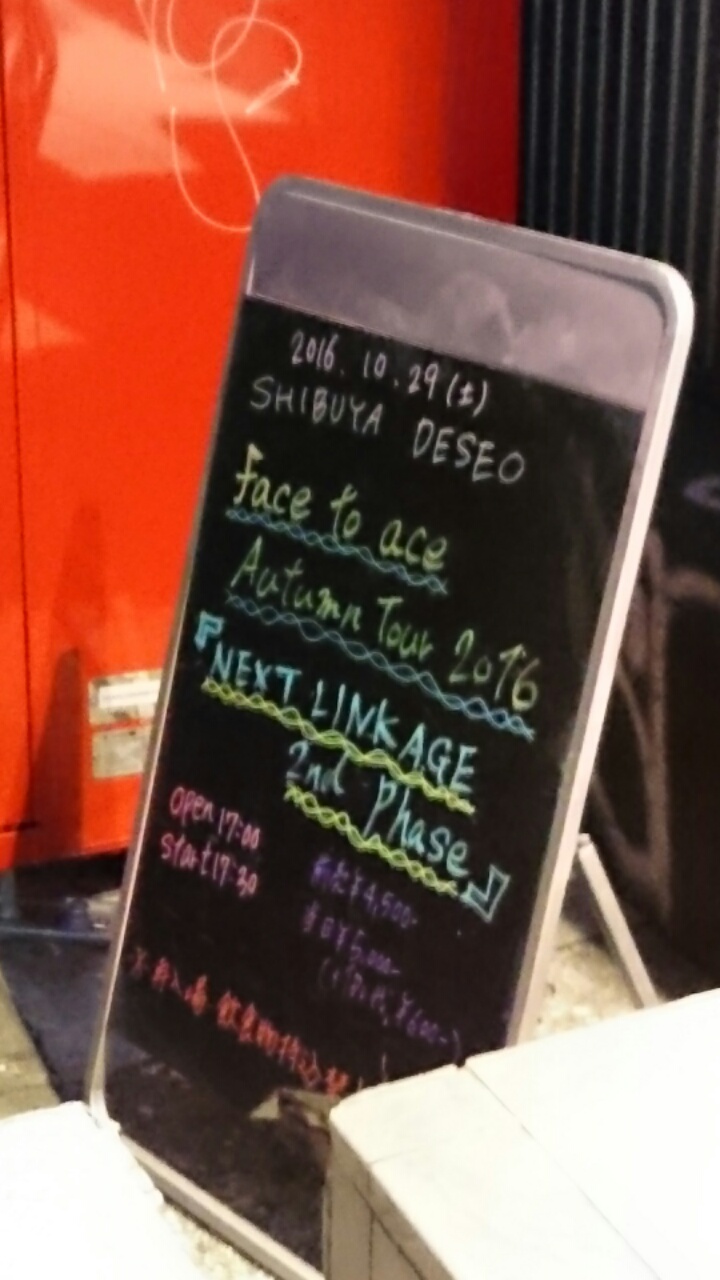 2016.10.29(土)
SHIBUYA DESEO
face to ace
Autumn Tour 2016
『NEXT LINKAGE
2nd Phase』
open 17:00
start 17:30
前売¥4,500-
当日¥5,000-
¥600-)
再入場 飲食物持込禁